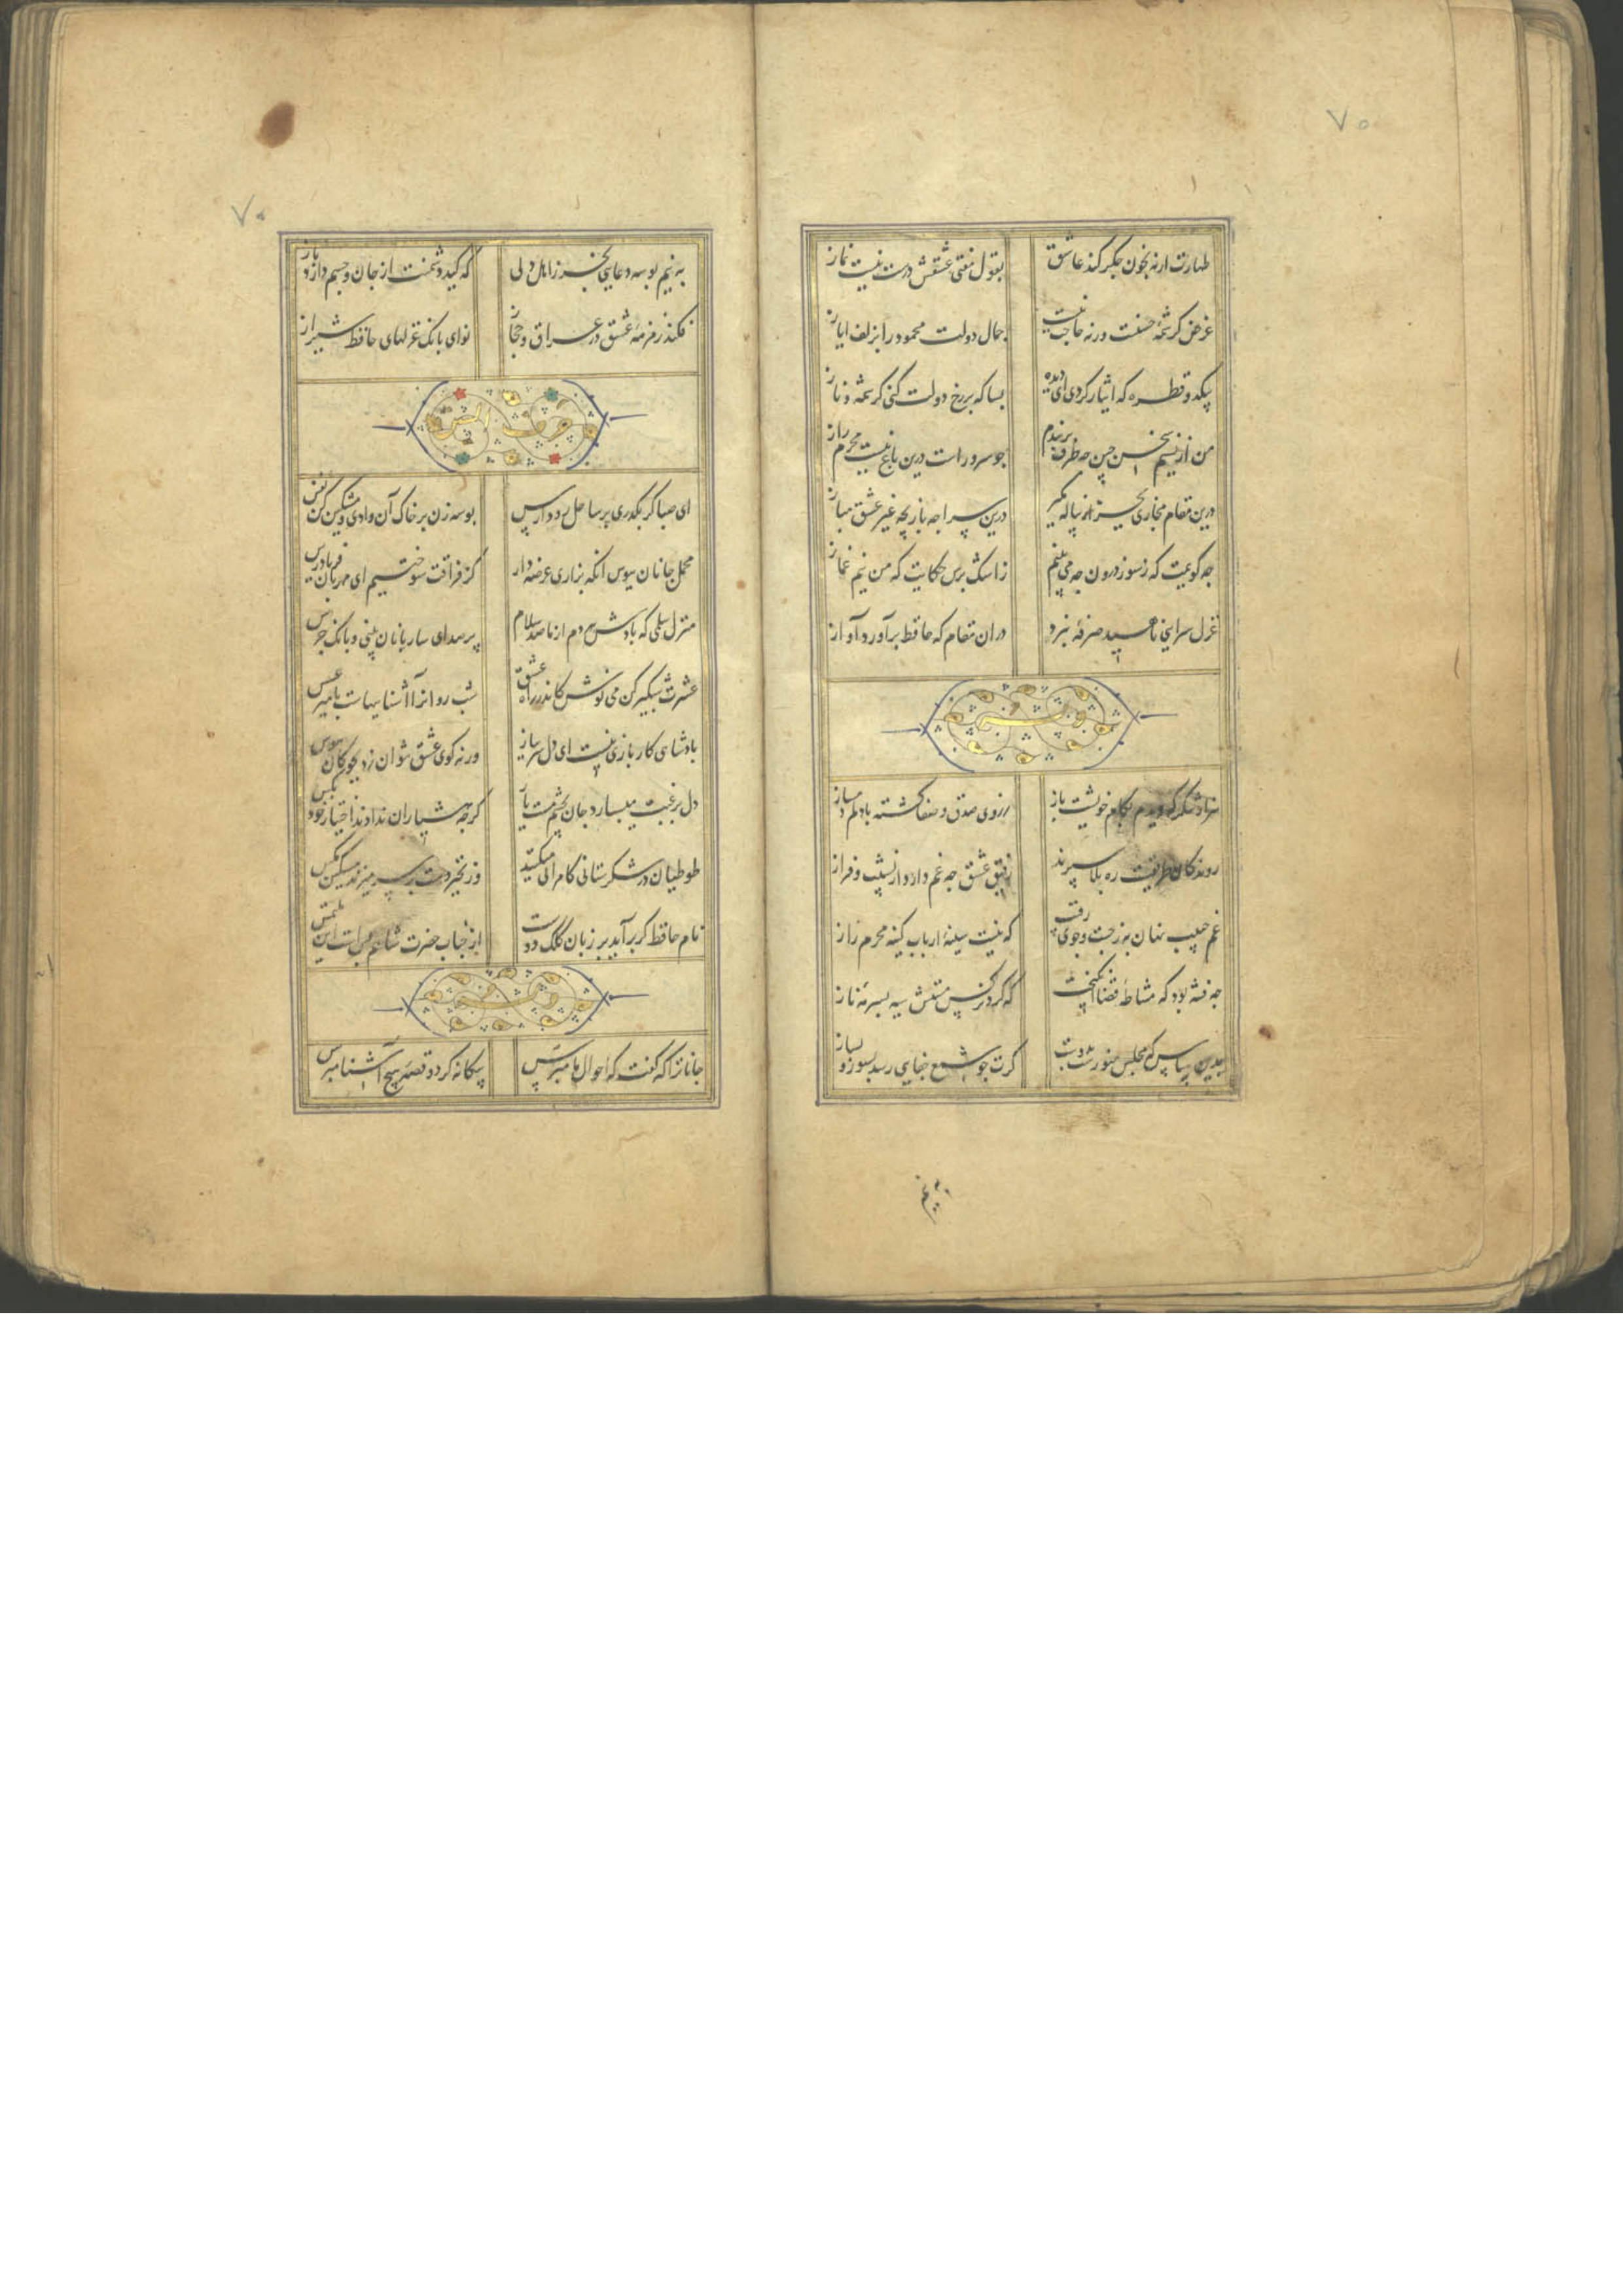 ۷۰
طهارت ارنه بخون جگر کند عاشق
بقول مفتی عشقش درست نیست نماز
غرض کرشمهٔ حسنست ورنه حاجت نیست
جمال دولت محمود را بزلف ایاز
بیکدو قطره که ایثار کردی ای دیده
بسا که بر رخ دولت کنی کرشمه و ناز
من از نسیم سخن چین چه طرف بربندم
چو سرو راست درین باغ نیست محرم راز
درین مقام مجازی بجز پیاله مگیر
درین سراچه بازیچه غیر عشق مباز
چه گویمت که ز سوز درون چه می بینم
ز اشک پرس حکایت که من نیم غماز
غزل سرایی ناهید صرفهٔ نبرد
دران مقام که حافظ برآورد آواز
وله
هزار شکر که دیدم بکام خویشت باز
ز روی صدق و صفا گشته با دلم دمساز
روندکان طریقت ره بلا سپرند
رفیق عشق چه غم دارد از نشیب و فراز
غم حبیب نهان به ز جست و جوی رقیب
که نیست سینهٔ ارباب کینه محرم راز
چه فتنه بود که مشاطهٔ قضا انگیخت
که کرد نرکس مستش سیه بسرمهٔ ناز
بدین سپاس که مجلس منورست بدوست
کرت چو شمع جفایی رسد بسوز و بساز
به نیم
۷۰
به نیم بوسه دعایی بخر ز اهل دلی
که کید دشمنت از جان و جسم دارد باز
فکند زمزمهٔ عشق در عراق و حجاز
نوای بانک غزلهای حافظ شیراز
حرف السین
ای صبا کر بکذری بر ساحل رود ارس
بوسه زن بر خاک آن وادی و مشکین کن نفس
محمل جانان ببوس آنکه بزاری عرضه دار
کز فراقت سوختیم ای مهربان فریاد رس
منزل سلمی که بادش هر دم از ما صد سلام
پر صدای ساربانان بینی و بانک جرس
عشرت شبگیر کن می نوش کاندر راه عشق
شب روانرا آشناییهاست با میر عسس
ورنه کوی عشق نتوان زد بچوکان هوس
دل برغبت میسپارد جان بچشم مست یار
کرچه هشیاران ندادند اختیار خود بکس
طوطیان در شکرستان کامرانی میکنند
وز تحیر دست بر سر میزند مسکین مکس
نام حافظ کر برآید بر زبان کلک دوست
از جناب حضرت شاهم بس است این ملتمس
وله
جانا ترا که گفت که احوال ما مپرس
بیکانه کرد و قصهٔ هیچ آشنا مپرس